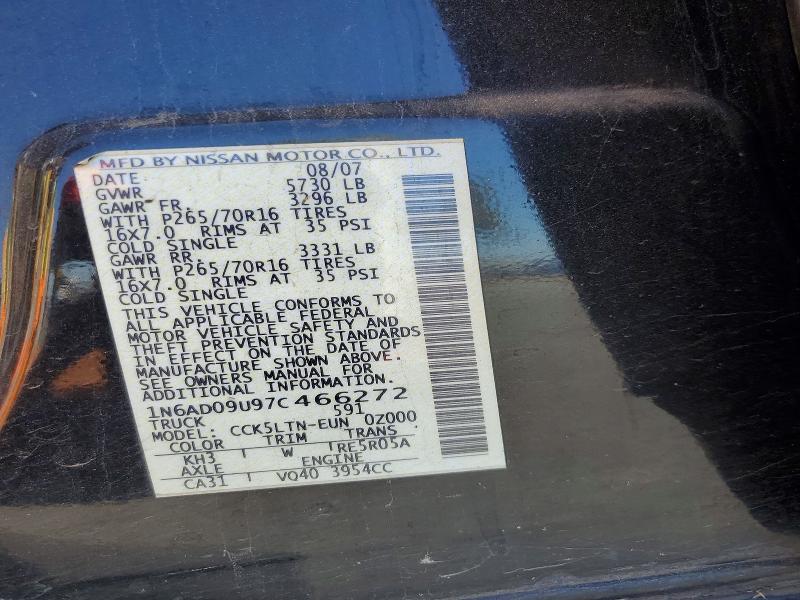 MFD BY NISSAN MOTOR CO., LTD.
DATE 08/07
GVWR 5730 LB
GAWR FR. 3296 LB
WITH P265/70R16 TIRES
16X7.0 RIMS AT 35 PSI
COLD SINGLE
GAWR RR. 3331 LB
WITH P265/70R16 TIRES
16X7.0 RIMS AT 35 PSI
COLD SINGLE
THIS VEHICLE CONFORMS TO
ALL APPLICABLE FEDERAL
MOTOR VEHICLE SAFETY AND
THEFT PREVENTION STANDARDS
IN EFFECT ON THE DATE OF
MANUFACTURE SHOWN ABOVE.
SEE OWNERS MANUAL FOR
ADDITIONAL INFORMATION.
1N6AD09U97C466272
TRUCK 591
MODEL: CCK5LTN-EUN 0Z000
COLOR TRIM TRANS
KH3 W RE5R05A
AXLE ENGINE
CA31 VQ40 3954CC